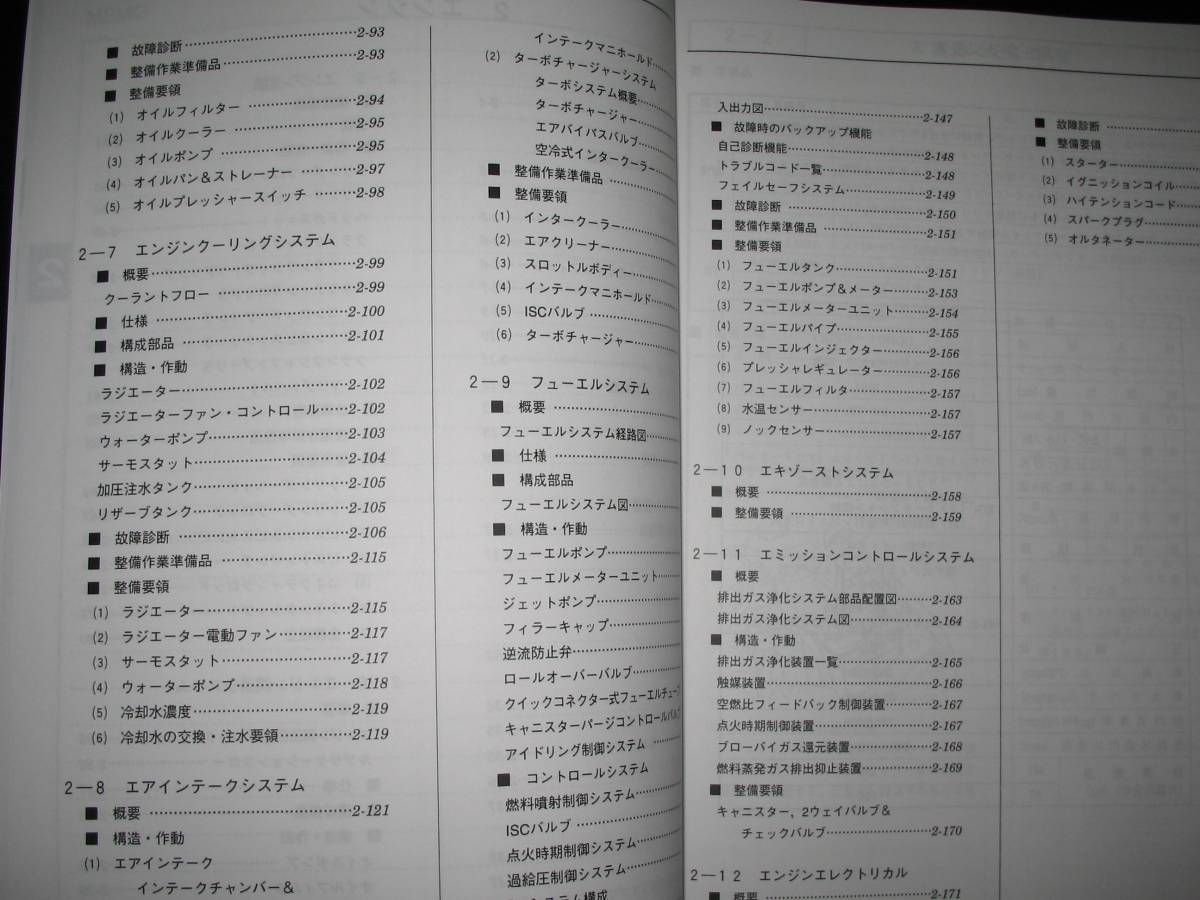 ■ 故障診断……2-93
■ 整備作業準備品……2-93
■ 整備要領
(1) オイルフィルター……2-94
(2) オイルクーラー……2-95
(3) オイルポンプ……2-95
(4) オイルパン＆ストレーナー……2-97
(5) オイルプレッシャースイッチ……2-98
2－7 エンジンクーリングシステム
■ 概要……2-99
クーラントフロー……2-99
■ 仕様……2-100
■ 構成部品……2-101
■ 構造・作動
ラジエーター……2-102
ラジエーターファン・コントロール……2-102
ウォーターポンプ……2-103
サーモスタット……2-104
加圧注水タンク……2-105
リザーブタンク……2-105
■ 故障診断……2-106
■ 整備作業準備品……2-115
■ 整備要領
(1) ラジエーター……2-115
(2) ラジエーター電動ファン……2-117
(3) サーモスタット……2-117
(4) ウォーターポンプ……2-118
(5) 冷却水濃度……2-119
(6) 冷却水の交換・注水要領……2-119
2－8 エアインテークシステム
■ 概要……2-121
■ 構造・作動
(1) エアインテーク
インテークチャンバー＆
インテークマニホールド……
(2) ターボチャージャーシステム
ターボシステム概要……
ターボチャージャー……
エアバイパスバルブ……
空冷式インタークーラー……
■ 整備作業準備品……
■ 整備要領
(1) インタークーラー……
(2) エアクリーナー……
(3) スロットルボディー……
(4) インテークマニホールド……
(5) ISCバルブ……
(6) ターボチャージャー……
2－9 フューエルシステム
■ 概要……
フューエルシステム経路図……
■ 仕様……
■ 構成部品
フューエルシステム図……
■ 構造・作動
フューエルポンプ……
フューエルメーターユニット……
ジェットポンプ……
フィラーキャップ……
逆流防止弁……
ロールオーバーバルブ……
クイックコネクター式フューエルチューブ
キャニスターパージコントロールバルブ
アイドリング制御システム……
■ コントロールシステム
燃料噴射制御システム……
ISCバルブ……
点火時期制御システム……
過給圧制御システム……
システム構成
入出力図……2-147
■ 故障時のバックアップ機能
自己診断機能……2-148
トラブルコード一覧……2-148
フェイルセーフシステム……2-149
■ 故障診断……2-150
■ 整備作業準備品……2-151
■ 整備要領
(1) フューエルタンク……2-151
(2) フューエルポンプ＆メーター……2-153
(3) フューエルメーターユニット……2-154
(4) フューエルパイプ……2-155
(5) フューエルインジェクター……2-156
(6) プレッシャレギュレーター……2-156
(7) フューエルフィルタ……2-157
(8) 水温センサー……2-157
(9) ノックセンサー……2-157
2－10 エキゾーストシステム
■ 概要……2-158
■ 整備要領……2-159
2－11 エミッションコントロールシステム
■ 概要
排出ガス浄化システム部品配置図……2-163
排出ガス浄化システム図……2-164
■ 構造・作動
排出ガス浄化装置一覧……2-165
触媒装置……2-166
空燃比フィードバック制御装置……2-167
点火時期制御装置……2-167
ブローバイガス還元装置……2-168
燃料蒸発ガス排出抑止装置……2-169
■ 整備要領
キャニスター, 2ウェイバルブ＆
チェックバルブ……2-170
2－12 エンジンエレクトリカル
■ 概要……2-171
■ 故障診断……
■ 整備要領
(1) スターター……
(2) イグニッションコイル……
(3) ハイテンションコード……
(4) スパークプラグ……
(5) オルタネーター……